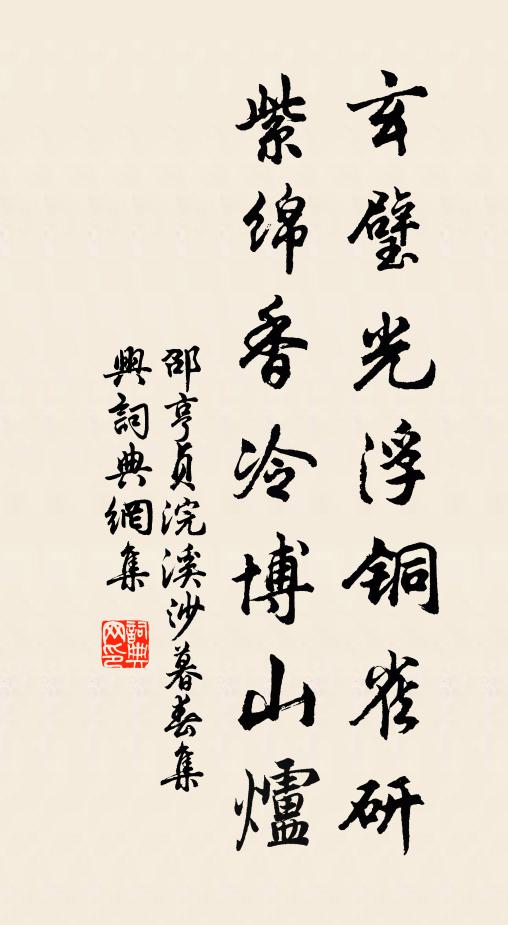 玄璧光浮铜雀研
紫绵香冷博山爐
邵亨貞浣溪沙暮春集
興詞典網集
詞典网印